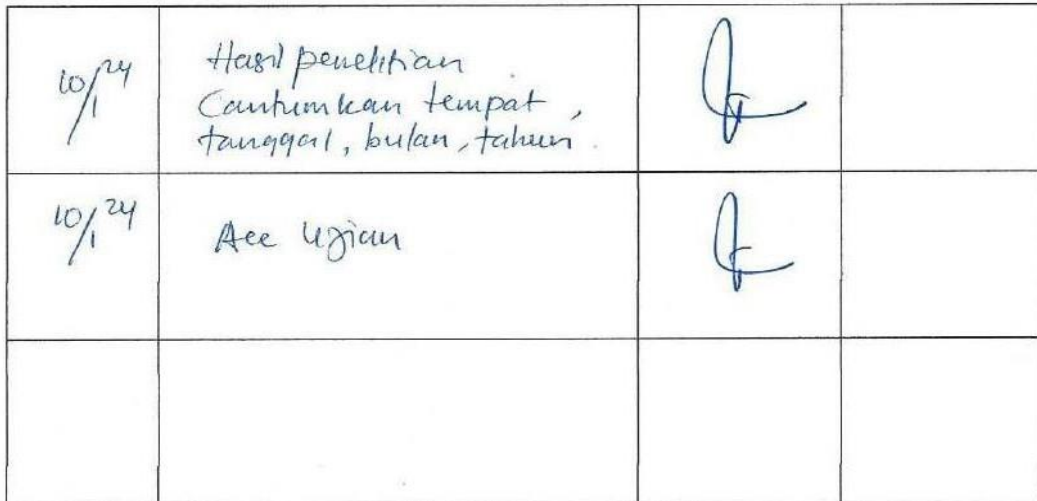 10/1 24
Hasil penelitian
Cantumkan tempat,
tanggal, bulan, tahun.
10/1 24
Acc Ujian